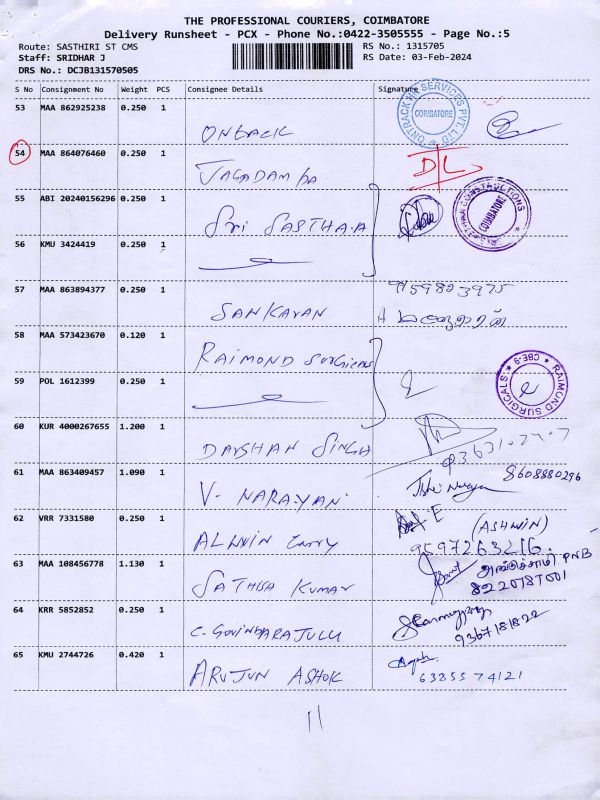 THE PROFESSIONAL COURIERS, COIMBATORE
Delivery Runsheet - PCX - Phone No.:0422-3505555 - Page No.:5
Route: SASTHIRI ST CMS
RS No.: 1315705
Staff: SRIDHAR J
RS Date: 03-Feb-2024
DRS No.: DCJB131570505
S No Consignment No Weight PCS Consignee Details Signature
53 MAA 862925238 0.250 1
ONTRACK HR SERVICES PVT. LTD COIMBATORE
54 MAA 864076460 0.250 1
JAGADAMBA D/L
55 ABI 20240156296 0.250 1
Sri SASTHAA
CONSTRUCTIONS COIMBATORE
56 KMU 3424419 0.250 1
57 MAA 863894377 0.250 1
9159823975
SANKARAN
58 MAA 573423670 0.120 1
RAIMOND SURGICALS
59 POL 1612399 0.250 1
RAIMOND SURGICALS CBE-9
60 KUR 4000267655 1.200 1
DARSHAN SINGH
61 MAA 863409457 1.090 1
8608880296
V. NARAYAN
62 VRR 7331580 0.250 1
(ASHWIN)
ALLWIN
9597263216.
63 MAA 108456778 1.130 1
PNB
SATHISH KUMAR
64 KRR 5852852 0.250 1
C. GOVINDARAJULU
65 KMU 2744726 0.420 1
ARUJUN ASHOK
6385574121
11